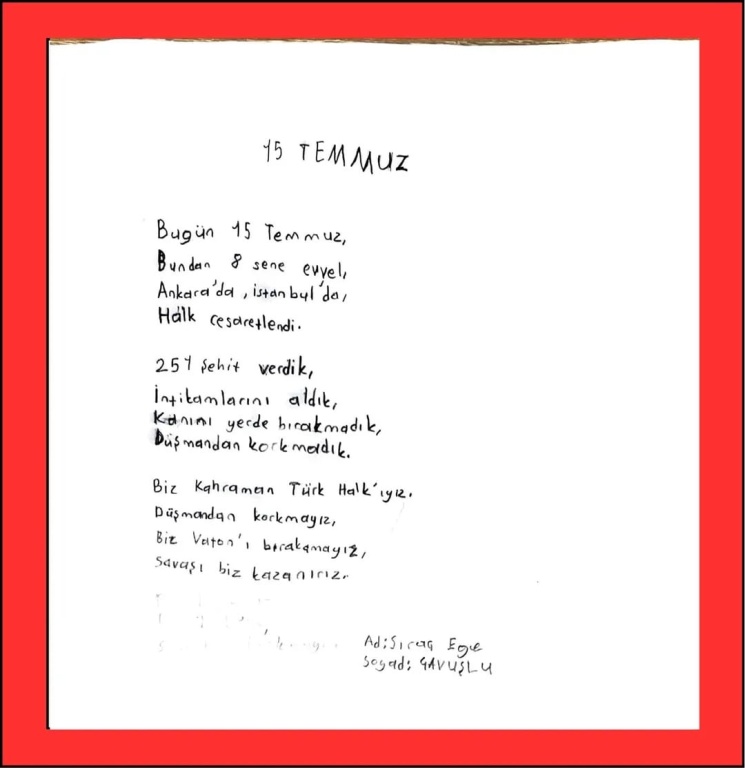 15 TEMMUZ
Bugün 15 Temmuz,
Bundan 8 sene evvel,
Ankara'da, istanbul'da,
Halk cesaretlendi.
251 şehit verdik,
İntikamlarını aldık,
Kanını yerde bırakmadık,
Düşmandan korkmadık.
Biz Kahraman Türk Halk'ıyız.
Düşmandan korkmayız,
Biz Vatan'ı bırakamayız,
Savaşı biz kazanırız.
Ad: Ege
Soyad: ÇAVUŞLU